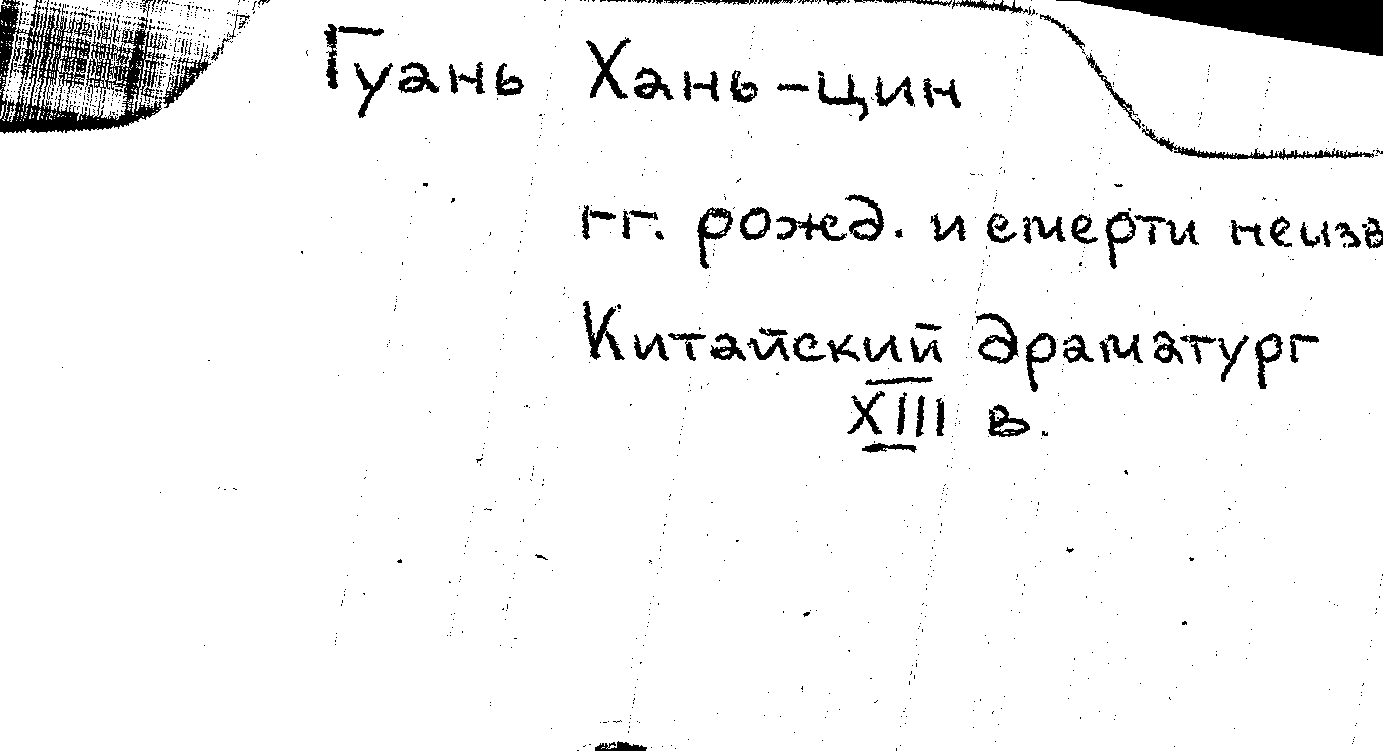 Гуань Хань-цин
гг. рожд. и смерти неизв
Китайский драматург
XIII в.